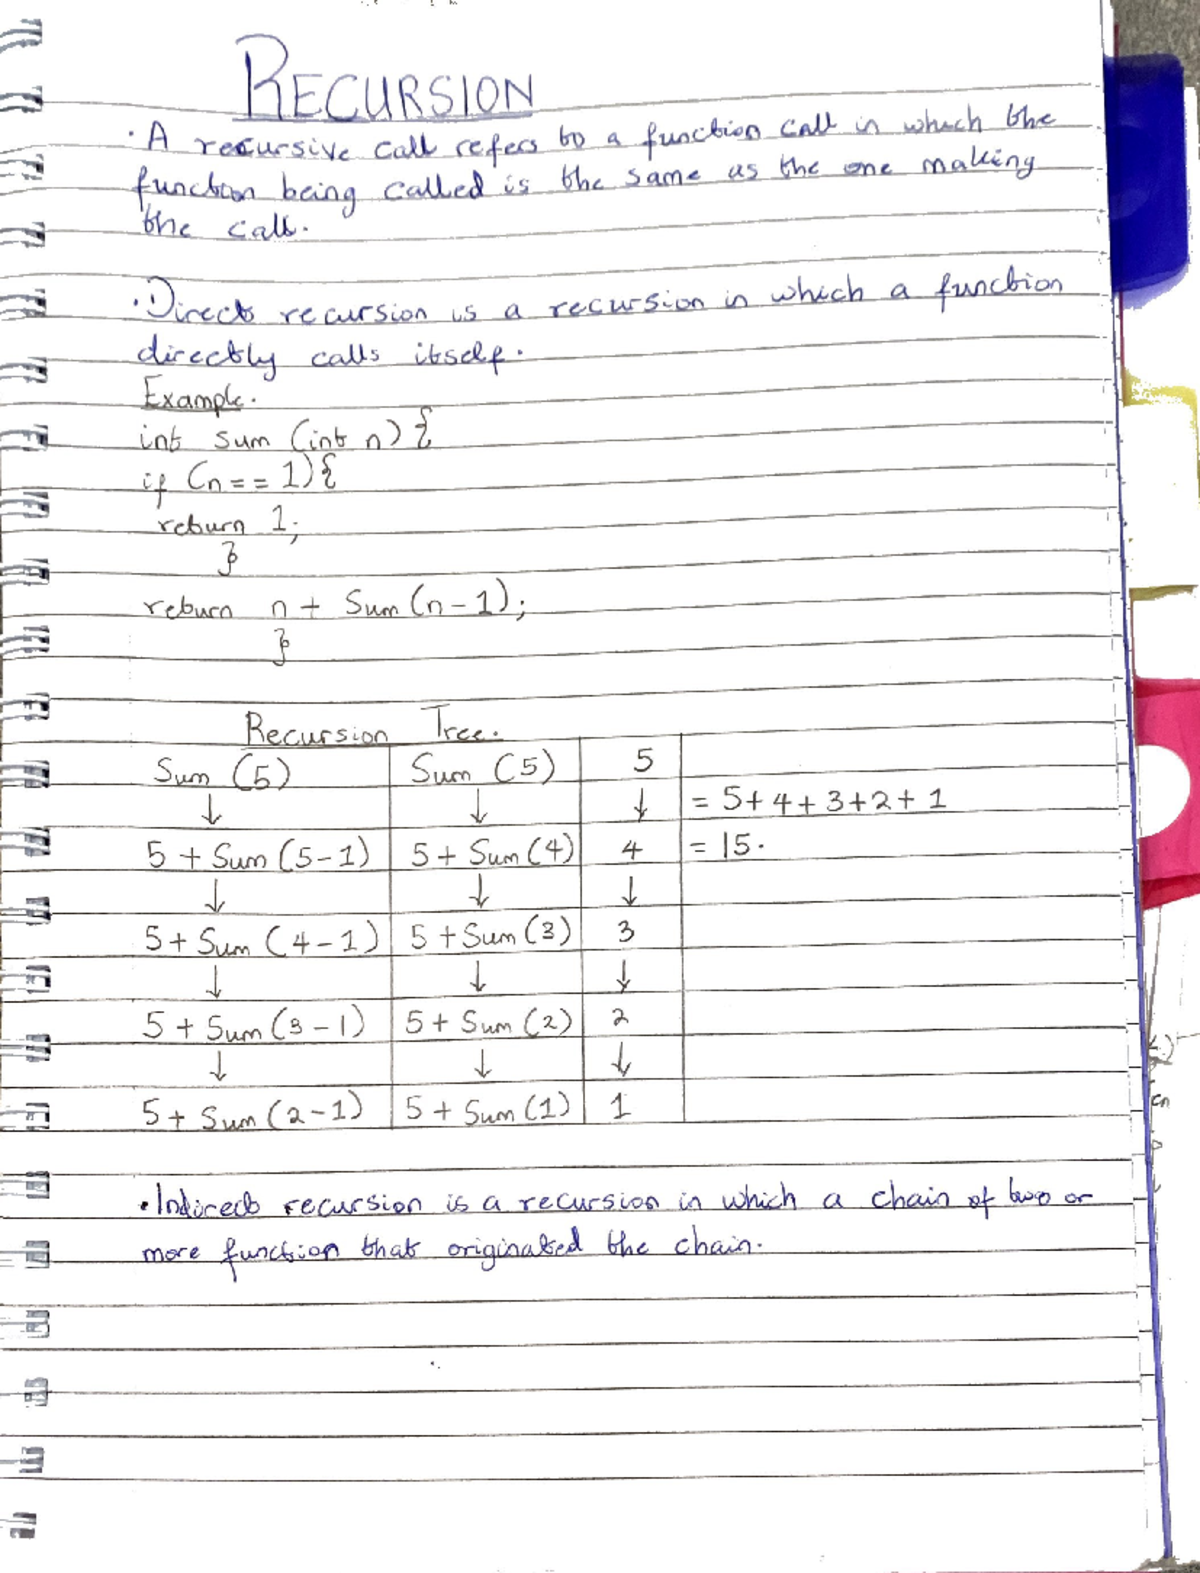 RECURSION
· A recursive call refers to a function call in which the
function being called is the same as the one making
the call.
· Direct recursion is a recursion in which a function
directly calls itself.
Example.
int sum (int n) {
if (n == 1) {
return 1;
}
return n + Sum (n-1);
}
Recursion Tree.
Sum (5) Sum (5) 5
↓ ↓ ↓ = 5+4+3+2+1
5 + Sum (5-1) 5 + Sum (4) 4 = 15.
↓ ↓ ↓
5 + Sum (4-1) 5 + Sum (3) 3
↓ ↓ ↓
5 + Sum (3-1) 5 + Sum (2) 2
↓ ↓ ↓
5 + Sum (2-1) 5 + Sum (1) 1
· Indirect recursion is a recursion in which a chain of two or
more function that originated the chain.